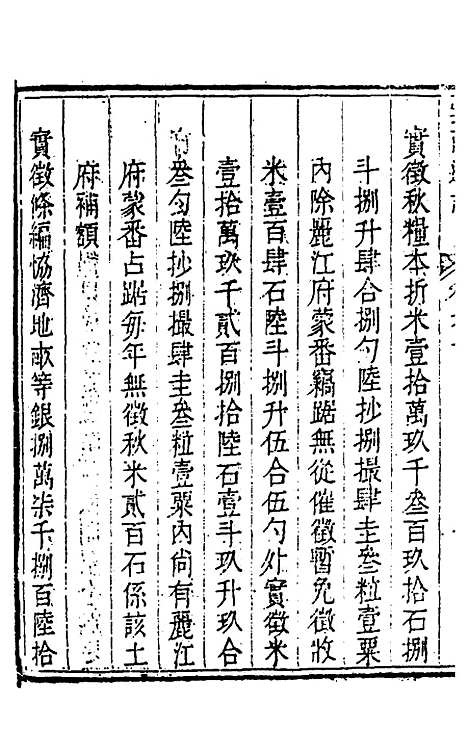 實徵秋糧本折米壹拾萬玖千叁百玖拾石捌
斗捌升肆合捌勺陸抄捌撮肆圭叁粒壹粟
內除麗江府蒙番竊踞無從催徵暫免徵收
米壹百肆石陸斗捌升伍合伍勺外實徵米
壹拾萬玖千貳百捌拾陸石壹斗玖升玖合
叁勺陸抄捌撮肆圭叁粒壹粟內尚有麗江
府蒙番占踞每年無徵秋米貳百石係該土
府補額
實徵條編協濟地畝等銀捌萬柒千捌百陸拾